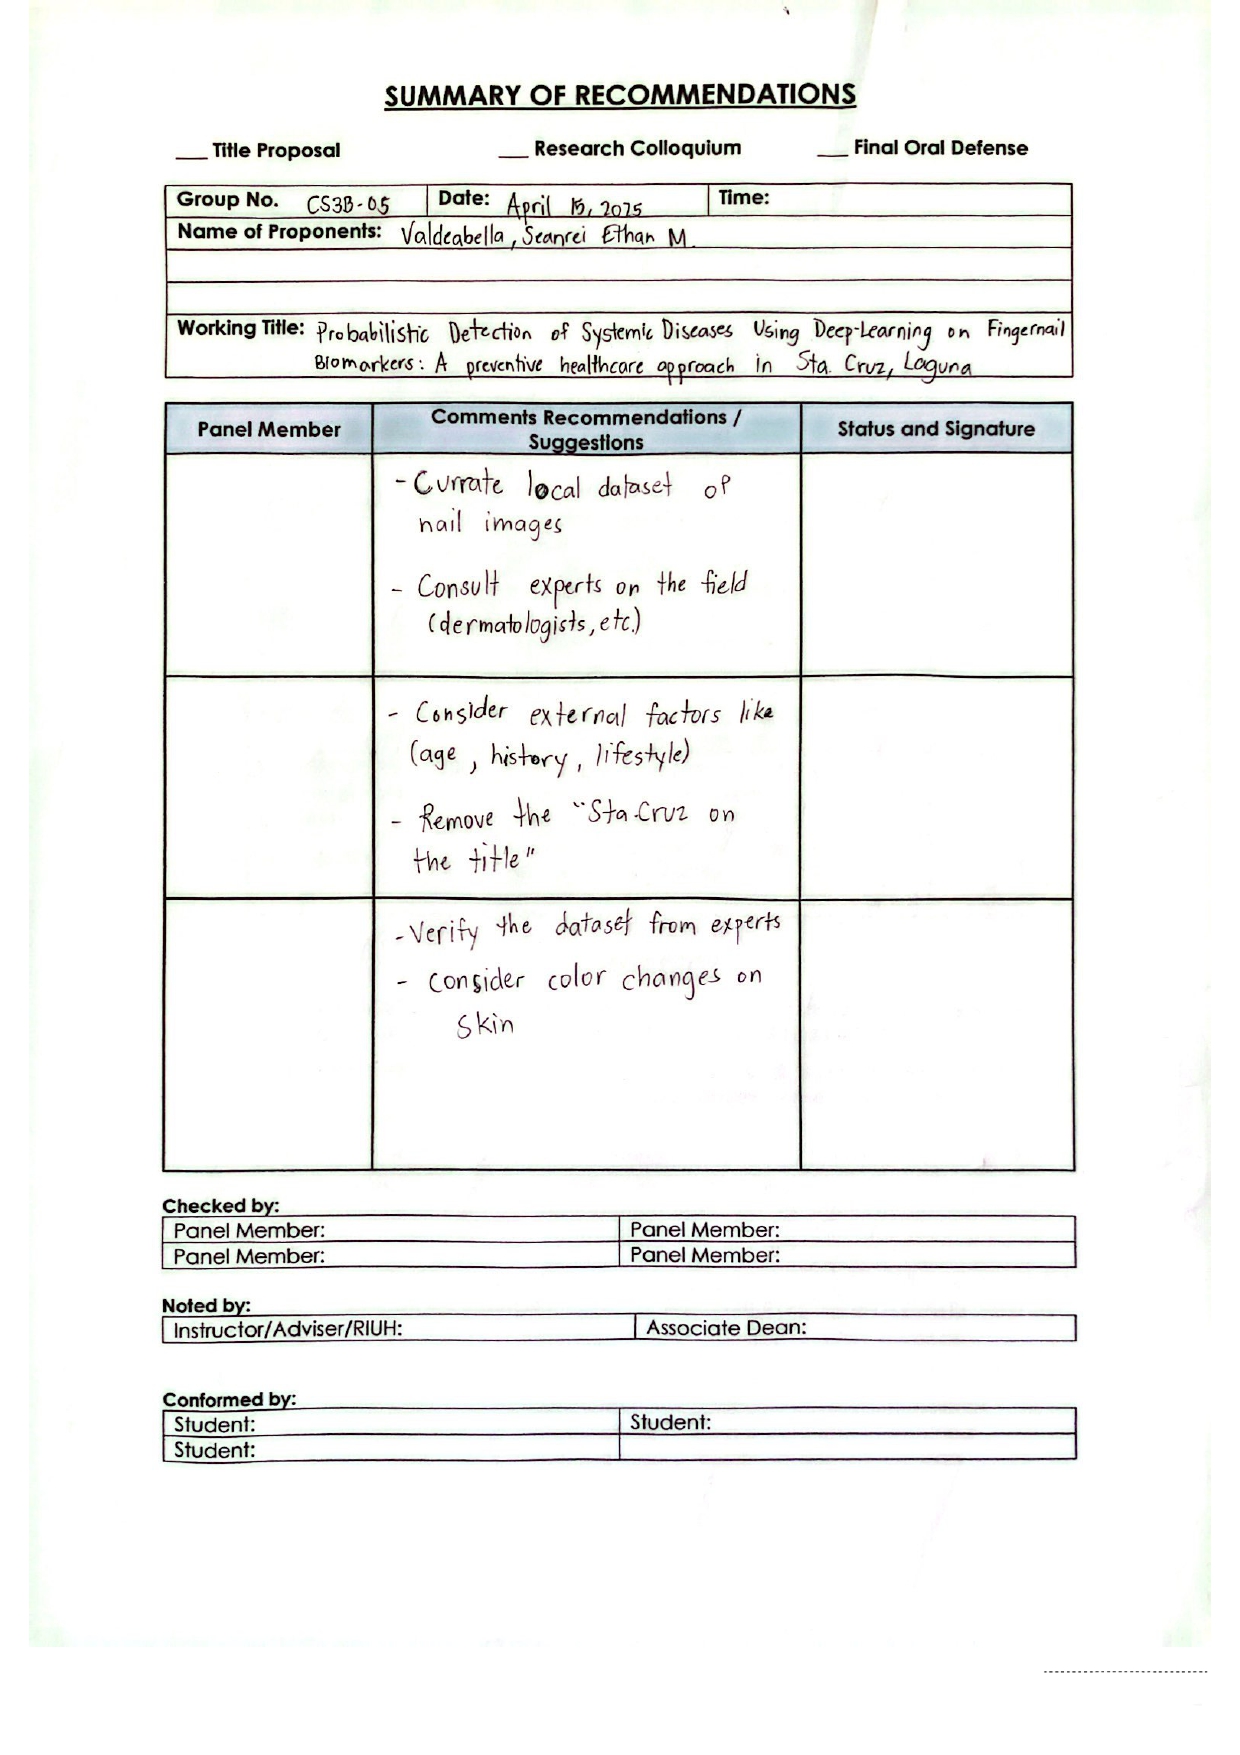 SUMMARY OF RECOMMENDATIONS
___ Title Proposal ___ Research Colloquium ___ Final Oral Defense
Group No. CS3B-05 Date: April 15, 2025 Time:
Name of Proponents: Valdeabella, Seanrei Ethan M.
Working Title: Probabilistic Detection of Systemic Diseases Using Deep-Learning on Fingernail
Biomarkers: A preventive healthcare approach in Sta. Cruz, Laguna
Panel Member
Comments Recommendations /
Suggestions
Status and Signature
- Currate local dataset of
nail images
- Consult experts on the field
(dermatologists, etc.)
- Consider external factors like
(age, history, lifestyle)
- Remove the "Sta.Cruz on
the title"
- Verify the dataset from experts
- Consider color changes on
skin
Checked by:
Panel Member: Panel Member:
Panel Member: Panel Member:
Noted by:
Instructor/Adviser/RIUH: Associate Dean:
Conformed by:
Student: Student:
Student: